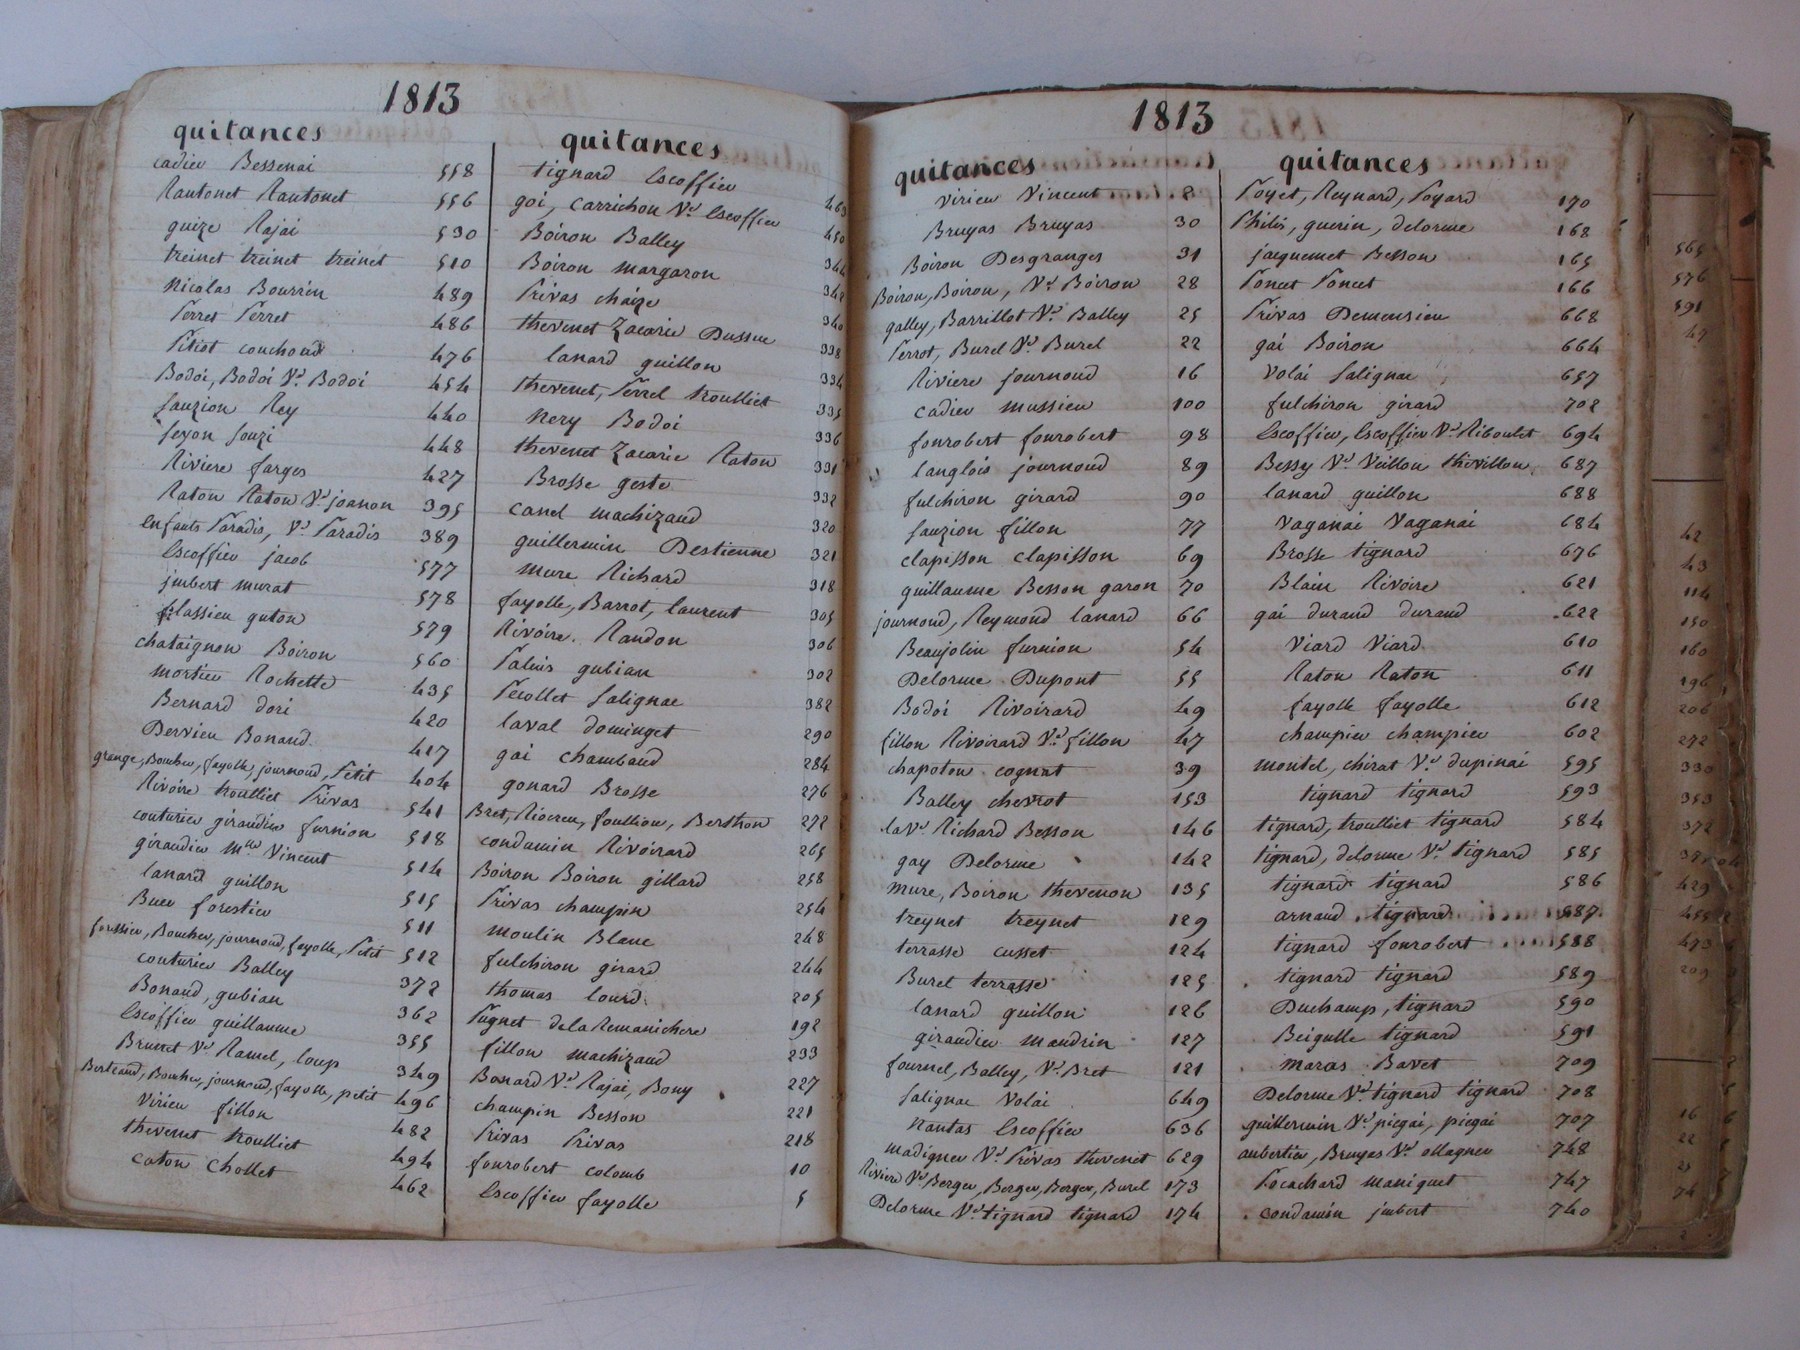 1813
quitances
cadieu Bessenai 558
Rantonet Rantonet 556
guize Rajai 530
treinet treinet treinet 510
Nicolas Bourrin 489
Perret Perret 486
Pitiot couchoud 476
Bodoi, Bodoi Vd Bodoi 454
fauzion Rey 440
feyon fouzi 448
Riviere farges 427
Raton Raton Vd joanon 395
Enfants Paradis, Vd Paradis 389
Escoffier jacob 577
jmbert murat 578
flassieu guton 579
chataignon Boiron 560
mortier Rochette 435
Bernard dori 420
Dervieu Bonand 417
grange, Boucher, fayolle, journoud, Petit 404
Rivoire troulliet Privas 541
couturier giraudier furnion 518
giraudier Vincent 514
lanard guillon 515
Buer forestier 511
forissier, Boucher, journoud, fayolle, Petit 512
couturier Balley 372
Bonand, gubian 362
Escoffier guillaume 355
Brunet Vd Ramel, loup 349
Bertrand, Boucher, journoud, fayolle, petit 496
Virieu fillon 482
thevenet troulliet 494
caton chollet 462
quitances
tignard Escoffier 463
goi, carrichon Vd Escoffier 450
Boiron Balley 344
Boiron margaron 342
Privas chaize 340
thevenet Zacarie Dussuc 338
lanard guillon 334
thevenet, Perrel troulliet 335
Nery Bodoi 336
thevenet Zacarie Raton 331
Brosse geste 332
canel machizaud 320
guillermin Destienne 321
mure Richard 318
fayolle, Barrot, laurent 305
Rivoire Randon 306
Paluis gubian 302
Pecollet Salignac 382
laval dominget 290
gai chambaud 284
gonard Brosse 276
Bret, Riocreu, foullion, Berthon 272
condamin Rivoirard 265
Boiron Boiron gillard 258
Privas champin 254
moulin Blanc 248
fulchiron girard 244
thomas lourd 205
Pugnet dela Remanichere 192
fillon machizaud 233
Bonard Vd Rajai, Bony 227
champin Besson 221
Privas Privas 218
fourobert colomb 10
Escoffier fayolle 5
1813
quitances
virieu Vincent 8
Bruyas Bruyas 30
Boiron Desgranges 31
Boiron, Boiron, Vd Boiron 28
galley, Barrillot Vd Balley 25
Perrot, Burel Vd Burel 22
Riviere journoud 16
cadieu mussieu 100
fourobert fourobert 98
langlois journoud 89
fulchiron girard 90
fauzion fillon 77
clapisson clapisson 69
guillaume Besson garon 70
journoud, Reymond lanard 66
Beaujolin furnion 54
Delorme Dupont 55
Bodoi Rivoirard 49
fillon Rivoirard Vd fillon 47
chapoton cognat 39
Balley chevrot 153
la Vd Richard Besson 146
gay Delorme 142
mure, Boiron thevenon 135
treynet treynet 129
terrasse cusset 124
Burel terrasse 125
lanard guillon 126
giraudier mandrin 127
fournel, Balley, Vd Bret 121
Salignac Volai 649
Nantas Escoffier 636
madignier Vd Privas thevenet 629
Riviere Vd Berger, Berger, Berger, Burel 173
Delorme Vd tignard tignard 174
quitances
Poyet, Reynard, Poyard 170
Philis, guerin, delorme 168
jacquemet Besson 165
Poncet Poncet 166
Privas Demeusieu 668
gai Boiron 664
Volai Salignac 657
fulchiron girard 702
Escoffier, Escoffier Vd Riboulet 694
Bessy Vd Veillon thivillon 687
lanard guillon 688
Vaganai Vaganai 684
Brosse tignard 676
Blain Rivoire 621
gai durand durand 622
Viard Viard 610
Raton Raton 611
fayolle fayolle 612
champier champier 602
montel, chirat Vd dupinai 595
tignard tignard 593
tignard, troulliet tignard 584
tignard, delorme Vd tignard 585
tignard tignard 586
arnaud, tignard 587
tignard fourobert 588
tignard tignard 589
Duchamp, tignard 590
Beigulle tignard 591
maras Bavet 709
Delorme Vd tignard tignard 708
guillermin Vd piegai, piegai 707
aubertier, Bruyas Vd ollagnier 748
Pocachard maniquet 747
condamin jmbert 740
565
576
591
47
42
43
114
150
160
196
206
272
330
353
372
429
455
473
209
16
22
74